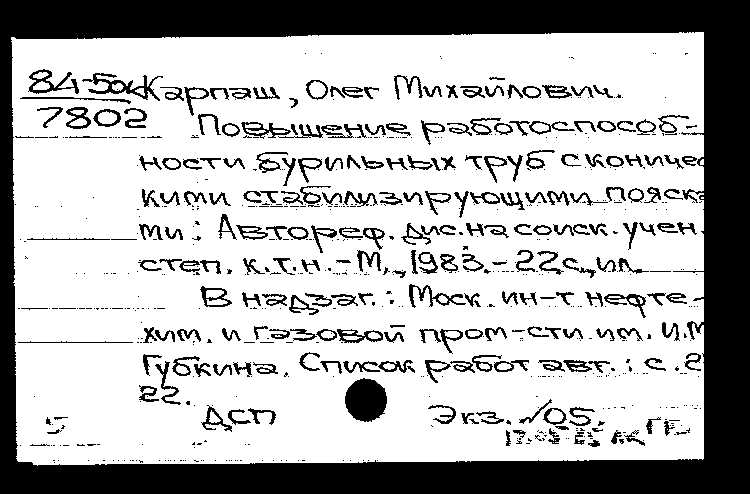 84-5ок Карпаш, Олег Михайлович.
7802
Повышение работоспособ-
ности бурильных труб с коничес
кими стабилизирующими пояска
ми : Автореф. дис. на соиск. учен.
степ. к.т.н. - М., 1983. - 22 с., ил.
В надзаг. : Моск. ин-т нефте-
хим. и газовой пром-сти им. И.М
Губкина. Список работ авт. : с. 2
22.
5 ДСП Экз. √05.